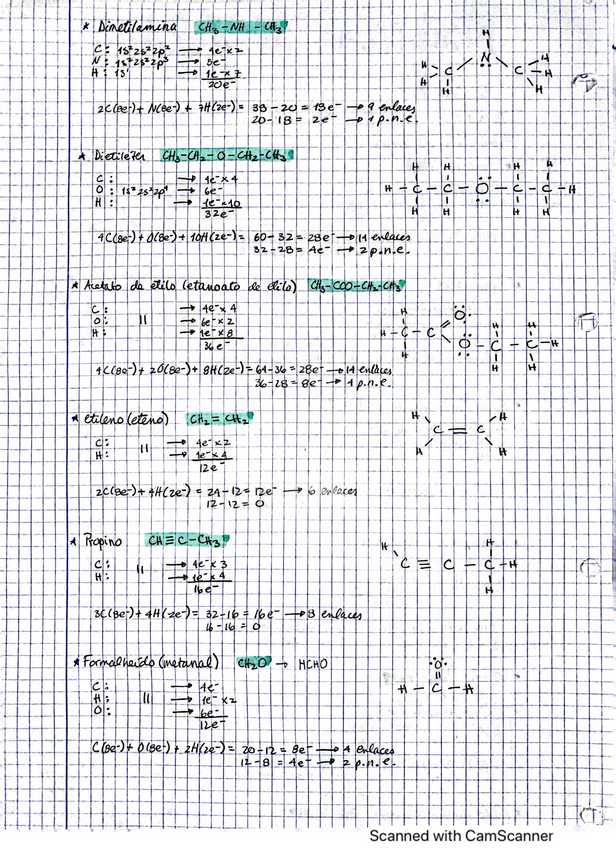 * Dimetilamina CH₃-NH-CH₃
C: 1s²2s²2p² → 4e⁻x2
N: 1s²2s²2p³ → 5e⁻
H: 1s¹ → 1e⁻x7
20e⁻
2C(8e⁻)+N(8e⁻)+7H(2e⁻)= 38-20=18e⁻ → 9 enlaces
20-18= 2e⁻ → 1 p.n.e.
* Dietiléter CH₃-CH₂-O-CH₂-CH₃
C: → 4e⁻x4
O: 1s²2s²2p⁴ → 6e⁻
H: → 1e⁻x10
32e⁻
4C(8e⁻)+O(8e⁻)+10H(2e⁻)= 60-32=28e⁻ → 14 enlaces
32-28=4e⁻ → 2 p.n.e.
* Acetato de etilo (etanoato de etilo) CH₃-COO-CH₂-CH₃
C: → 4e⁻x4
O: " → 6e⁻x2
H: → 1e⁻x8
36e⁻
4C(8e⁻)+2O(8e⁻)+8H(2e⁻)=64-36=28e⁻ → 14 enlaces
36-28=8e⁻ → 4 p.n.e.
* etileno (eteno) CH₂=CH₂
C: " → 4e⁻x2
H: → 1e⁻x4
12e⁻
2C(8e⁻)+4H(2e⁻)=24-12=12e⁻ → 6 enlaces
12-12=0
* Propino CH≡C-CH₃
C: " → 4e⁻x3
H: → 1e⁻x4
16e⁻
3C(8e⁻)+4H(2e⁻)= 32-16=16e⁻ → 8 enlaces
16-16=0
* Formaldheído (metanal) CH₂O → HCHO
C: → 4e⁻
H: " → 1e⁻x2
O: → 6e⁻
12e⁻
C(8e⁻)+O(8e⁻)+2H(2e⁻)= 20-12=8e⁻ → 4 enlaces
12-8=4e⁻ → 2 p.n.e.
Scanned with CamScanner